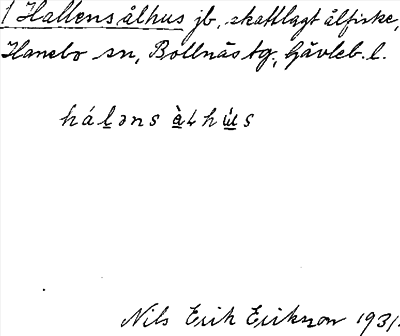 1 Hallens ålhus jb, skattlagt ålfiske,
Hanebo sn, Bollnäs tg, Gävleb. l.
háḷəns à̱ɬhù̱s
Nils Erik Erikson 1931.